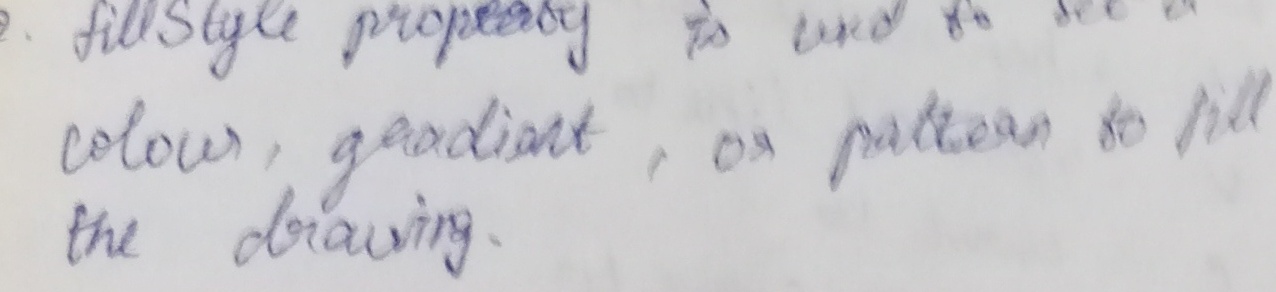 2. fillStyle property is used to set a
colour, gradient, or pattern to fill
the drawing.